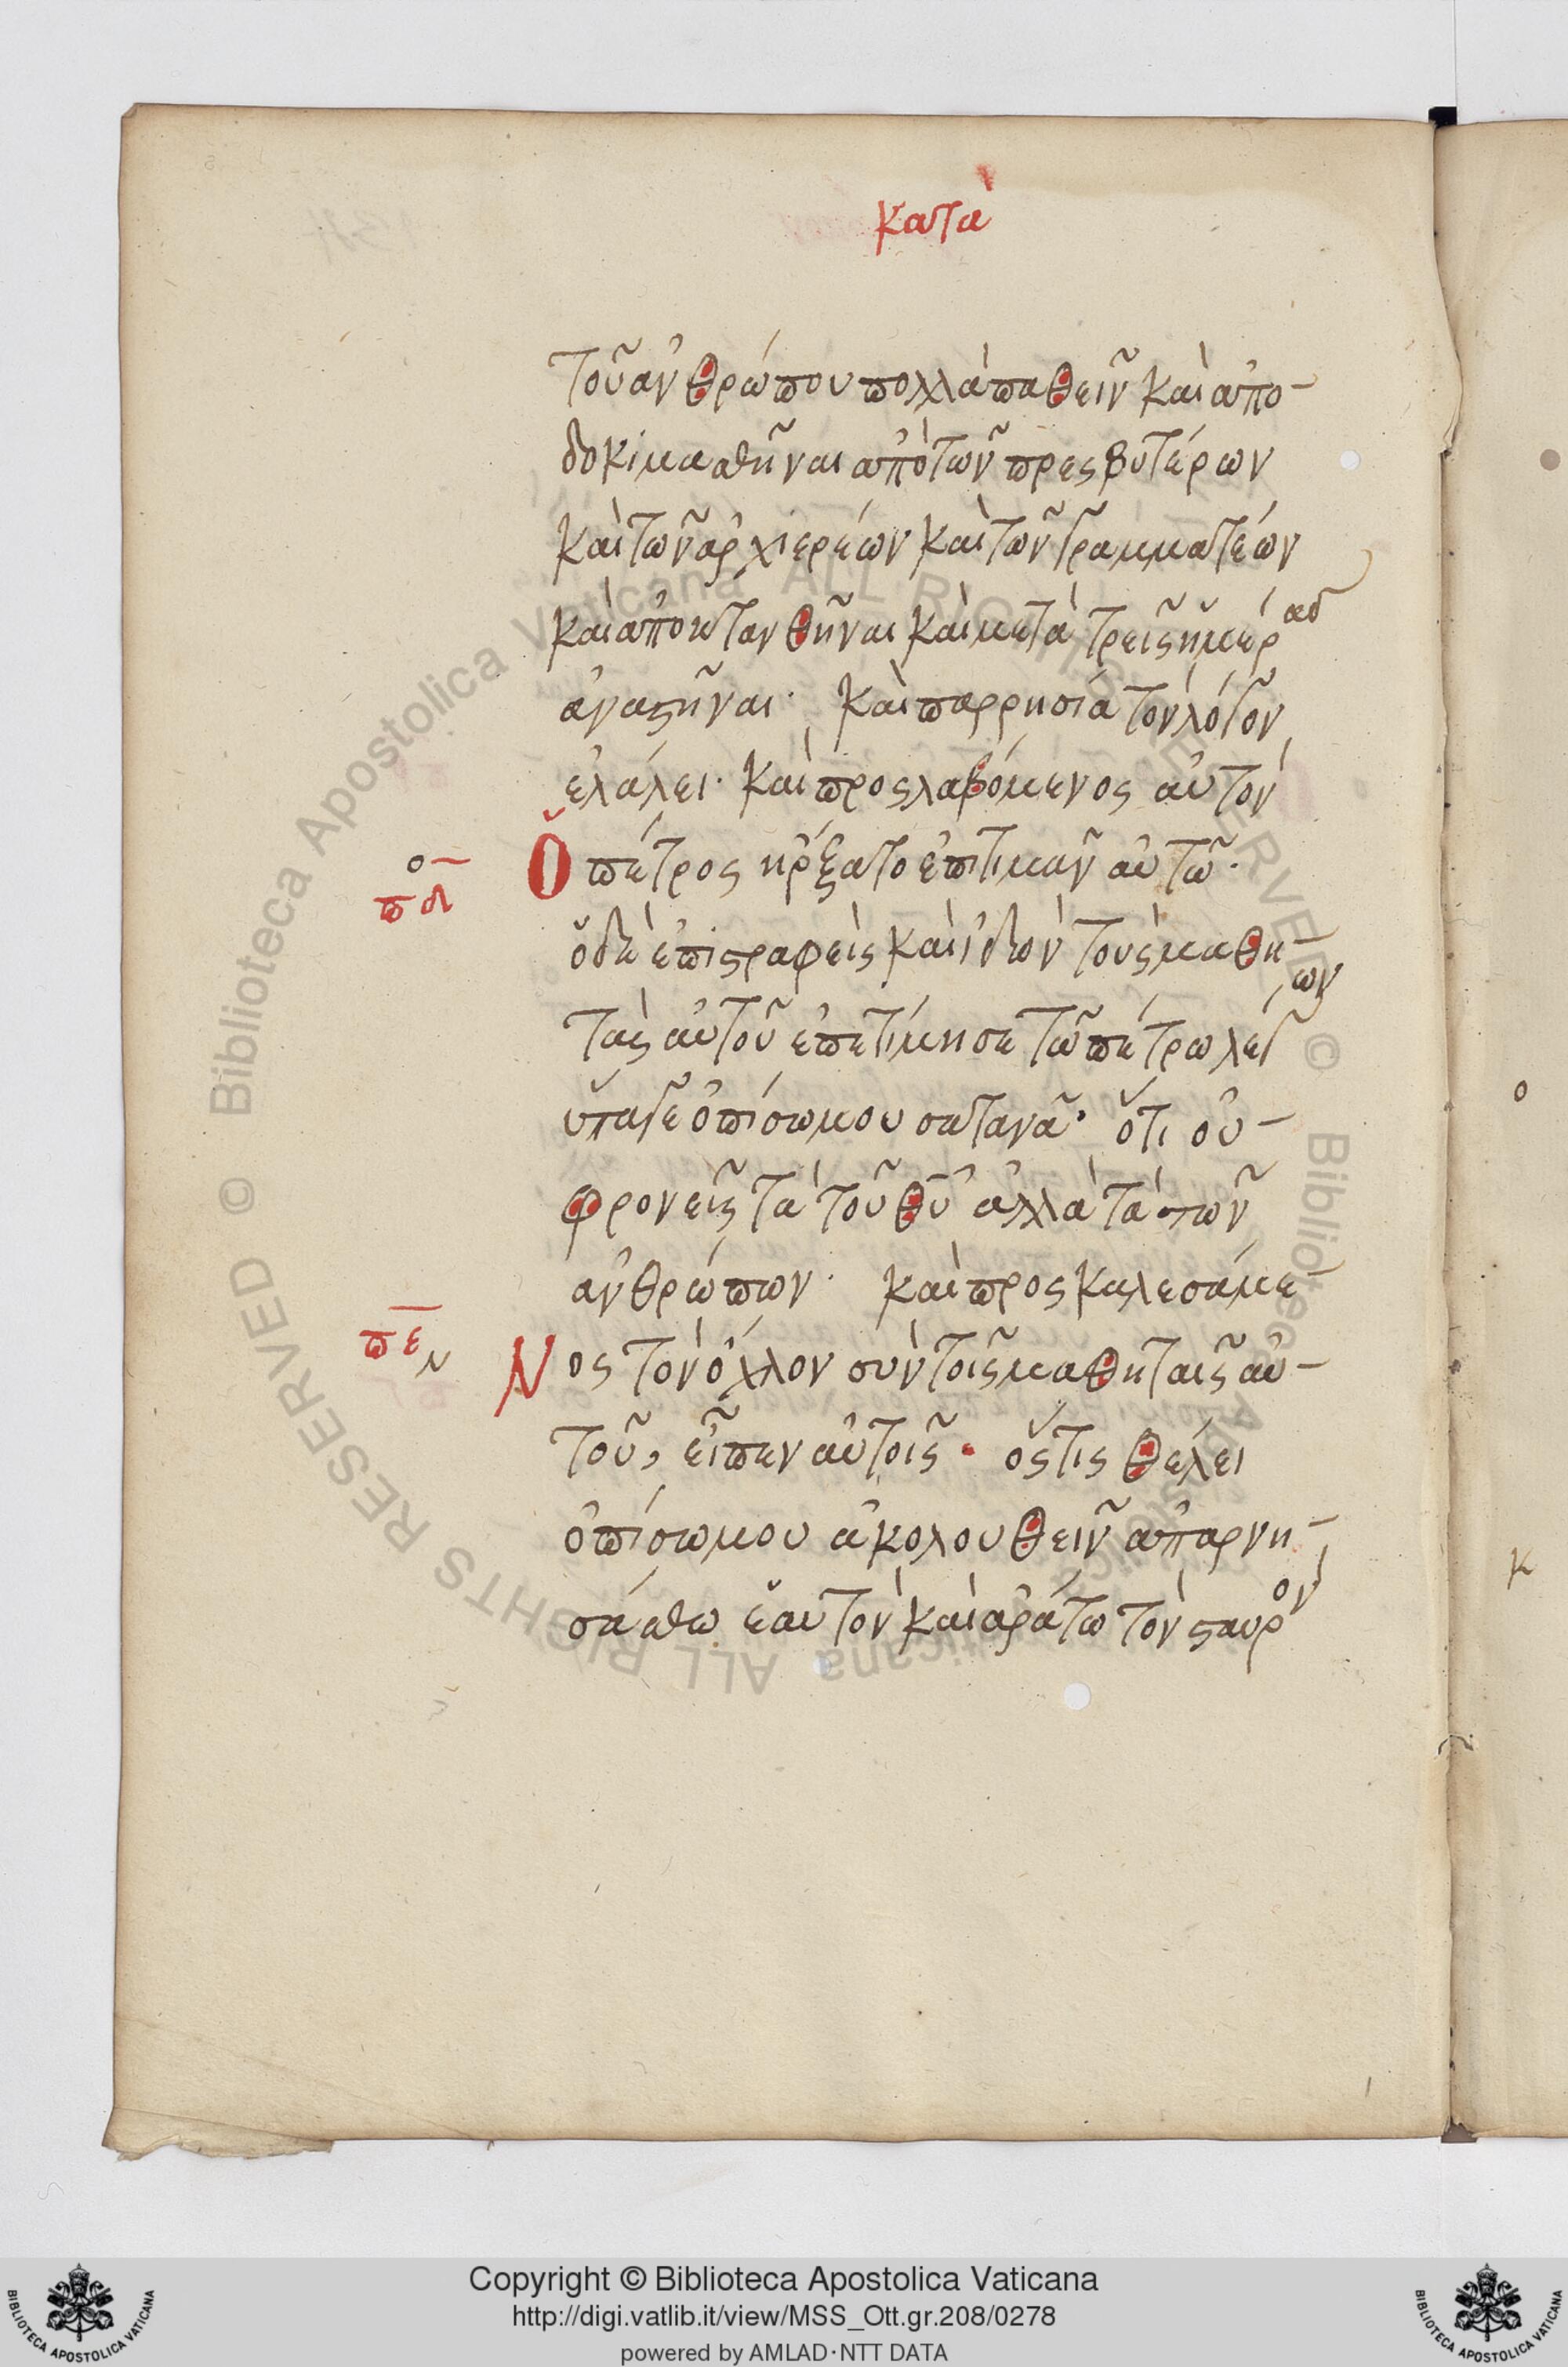 κατὰ
τοῦ ἀνθρώπου πολλὰ παθεῖν καὶ ἀπο-
δοκιμασθῆναι ἀπὸ τῶν πρεσβυτέρων
καὶ τῶν ἀρχιερέων καὶ τῶν γραμματέων
καὶ ἀποκτανθῆναι καὶ μετὰ τρεῖς ἡμέρας
ἀναστῆναι· καὶ παρρησία τὸν λόγον
ἐλάλει· καὶ προσλαβόμενος αὐτὸν
ὁ πέτρος ἤρξατο ἐπιτιμαῖν αὐτῶ·
ο
πδ
ὁ δὲ ἐπιστραφεὶς καὶ ἰδὼν τοὺς μαθη-
τὰς αὐτοῦ ἐπετίμησε τῶ πέτρω λέγων
ὕπαγε ὀπίσω μου σατανᾶ· ὅτι οὐ-
φρονεῖς τὰ τοῦ θυ ἀλλὰ τὰ τῶν
ἀνθρώπων· καὶ προσκαλεσάμε-
πε
ν
νος τὸν ὄχλον σὺν τοῖς μαθηταῖς αὐ-
τοῦ, εἶπεν αὐτοῖς· ὅστις θέλει
ὀπίσω μου ἀκολουθεῖν ἀπαρνη-
σάσθω ἑαυτὸν καὶ ἀράτω τὸν σταυρὸν
ο
κ
© Biblioteca Apostolica Vaticana ALL RIGHTS RESERVED © Biblioteca Apostolica Vaticana ALL RIGHTS RESERVED
Copyright © Biblioteca Apostolica Vaticana
http://digi.vatlib.it/view/MSS_Ott.gr.208/0278
powered by AMLAD·NTT DATA
BIBLIOTECA APOSTOLICA VATICANA
BIBLIOTECA APOSTOLICA VATICANA